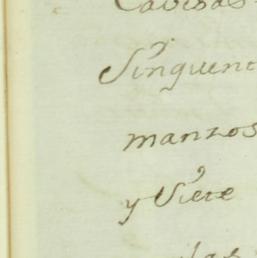 Cavesas
Sinquenc
manzos
y Siete